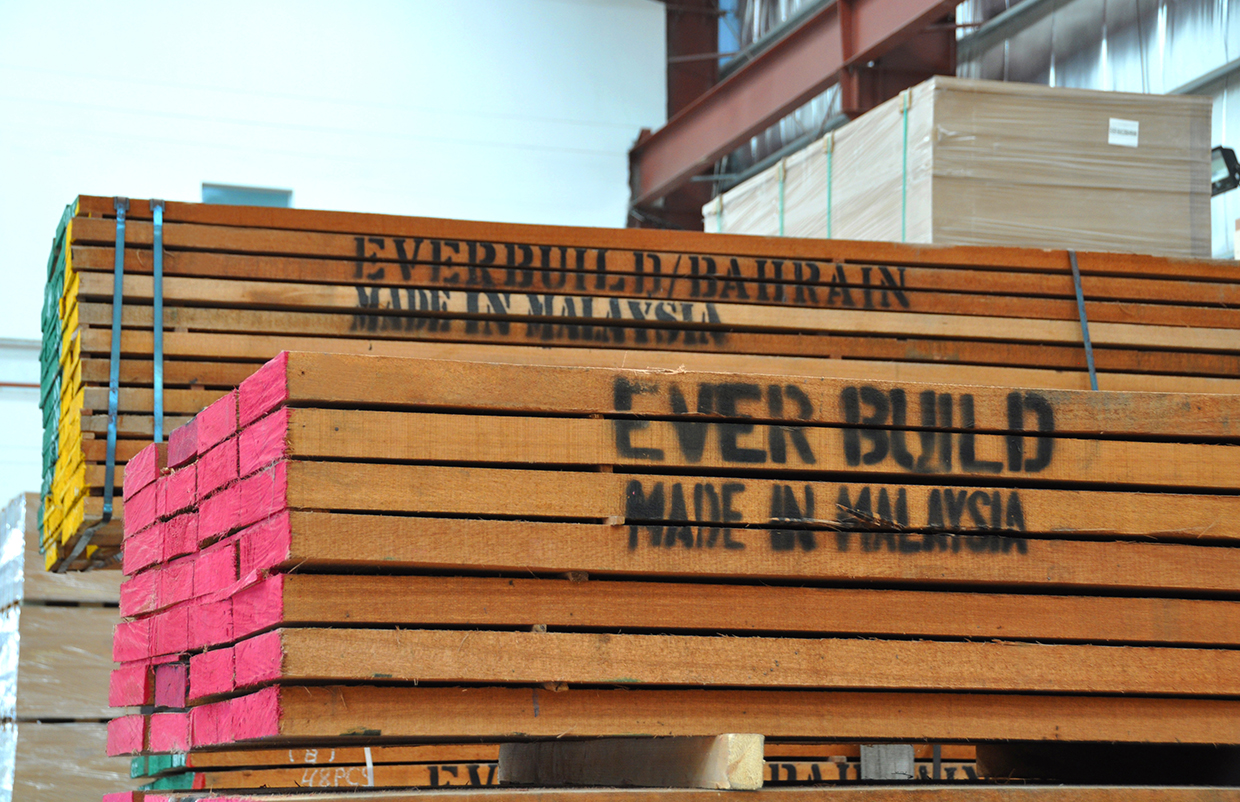 EVERBUILD/BAHRAIN
MADE IN MALAYSIA
EVER BUILD
MADE IN MALAYSIA
(B)
48PCS